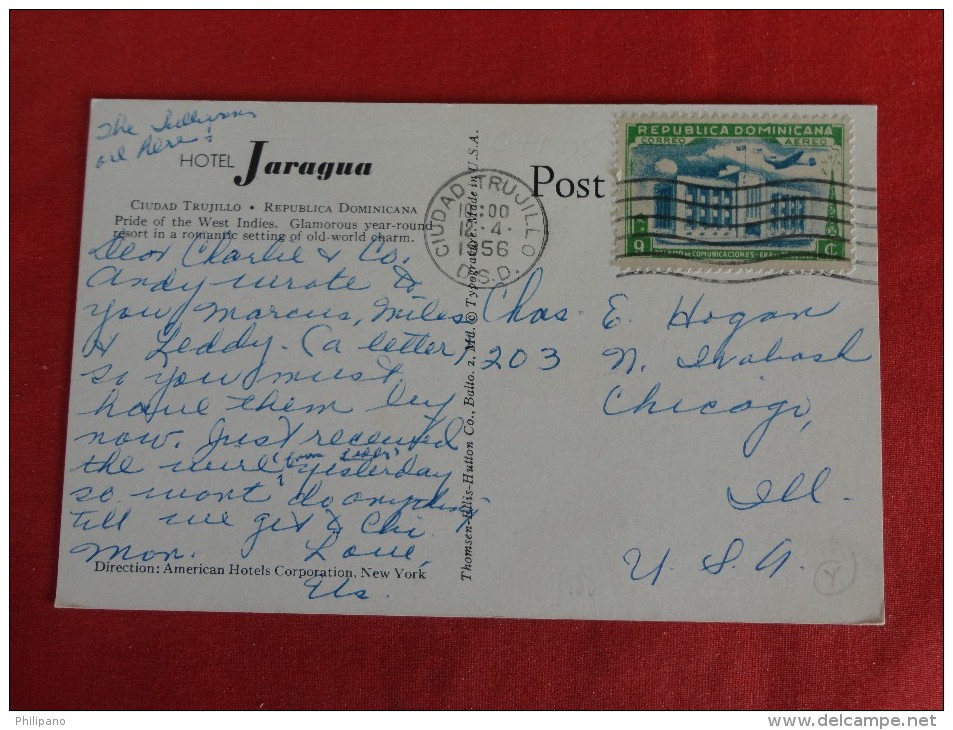 The Sullivans
are here!
HOTEL Jaragua
CIUDAD TRUJILLO • REPUBLICA DOMINICANA
Pride of the West Indies. Glamorous year-round
resort in a romantic setting of old-world charm.
Dear Charlie & Co.
Andy wrote to
you, Marcus, Miles
& Leddy. (a letter)
so you must
have them by
now. Just received
the wire (from
yesterday
so wont do anything
till we get to Chi.
Mon. Love,
Us.
Direction: American Hotels Corporation, New York
Thomsen-Ellis-Hutton Co., Balto. 2, Md. © Typografure Made in U.S.A.
CIUDAD TRUJILLO
1956
D.S.D.
Post
REPUBLICA DOMINICANA
CORREO AEREO
9 C.
DE COMUNICACIONES
Chas. E. Hogan
203 N. Wabash
Chicago,
Ill.
U. S. A.
Philipano
www.delcampe.net